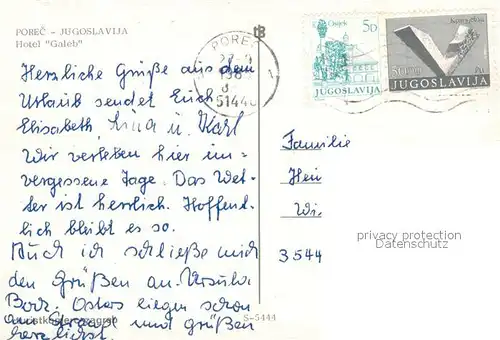 POREČ - JUGOSLAVIJA
Hotel "Galeb"
Herzliche Grüße aus dem
Urlaub sendet Euch
Elisabeth, Lina u. Karl
Wir verleben hier un-
vergessene Tage. Das Wet-
ter ist herrlich. Hoffent-
lich bleibt es so.
Auch ich schließe mich
den Grüßen an. Ursula
liegen schon
am Strand und grüßen
herzlichst.
S-5444
POREČ
51440
Osijek
5D
JUGOSLAVIJA
JUGOSLAVIJA
Familie
Hein
Wi.
3544
privacy protection
Datenschutz